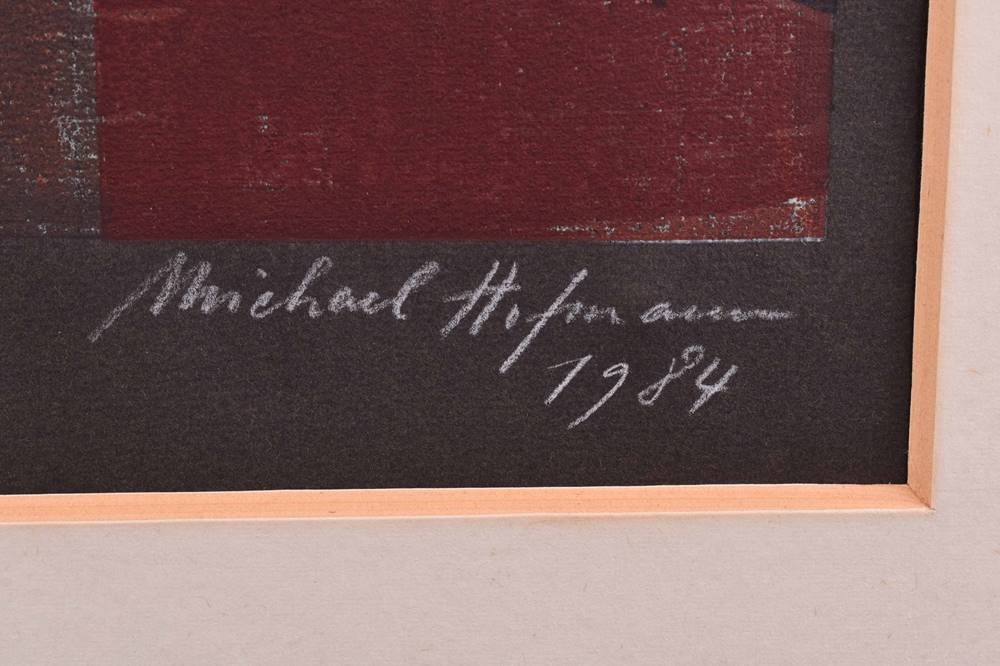 Michael Hofmann
1984